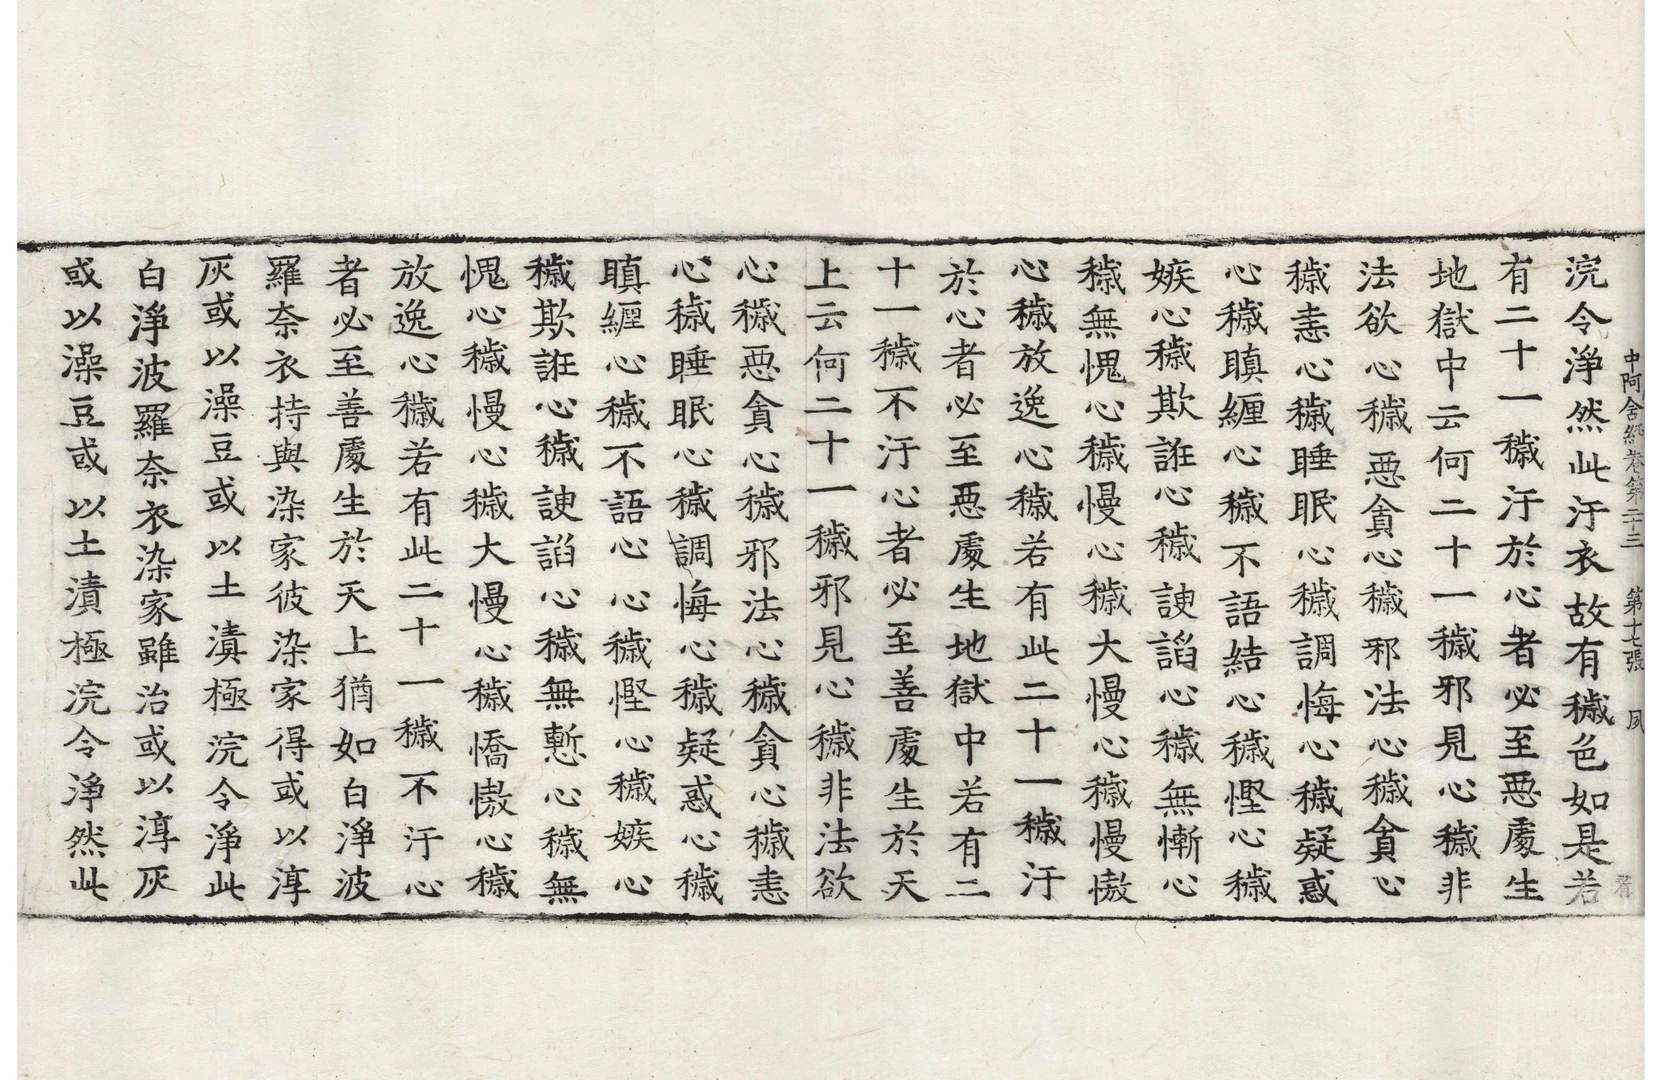 中阿含經卷第二十三　第十七張　夙
浣令淨然此汙衣故有穢色如是若
有二十一穢汙於心者必至惡處生
地獄中云何二十一穢邪見心穢非
法欲心穢惡貪心穢邪法心穢貪心
穢恚心穢睡眠心穢調悔心穢疑惑
心穢瞋纏心穢不語結心穢慳心穢
嫉心穢欺誑心穢諛諂心穢無慚心
穢無愧心穢慢心穢大慢心穢慢慠
心穢放逸心穢若有此二十一穢汙
於心者必至惡處生地獄中若有二
十一穢不汙心者必至善處生於天
上云何二十一穢邪見心穢非法欲
心穢惡貪心穢邪法心穢貪心穢恚
心穢睡眠心穢調悔心穢疑惑心穢
瞋纏心穢不語心心穢慳心穢嫉心
穢欺誑心穢諛諂心穢無慙心穢無
愧心穢慢心穢大慢心穢憍慠心穢
放逸心穢若有此二十一穢不汙心
者必至善處生於天上猶如白淨波
羅奈衣持與染家彼染家得或以淳
灰或以澡豆或以土漬極浣令淨此
白淨波羅奈衣染家雖治或以淳灰
或以澡豆或以土漬極浣令淨然此